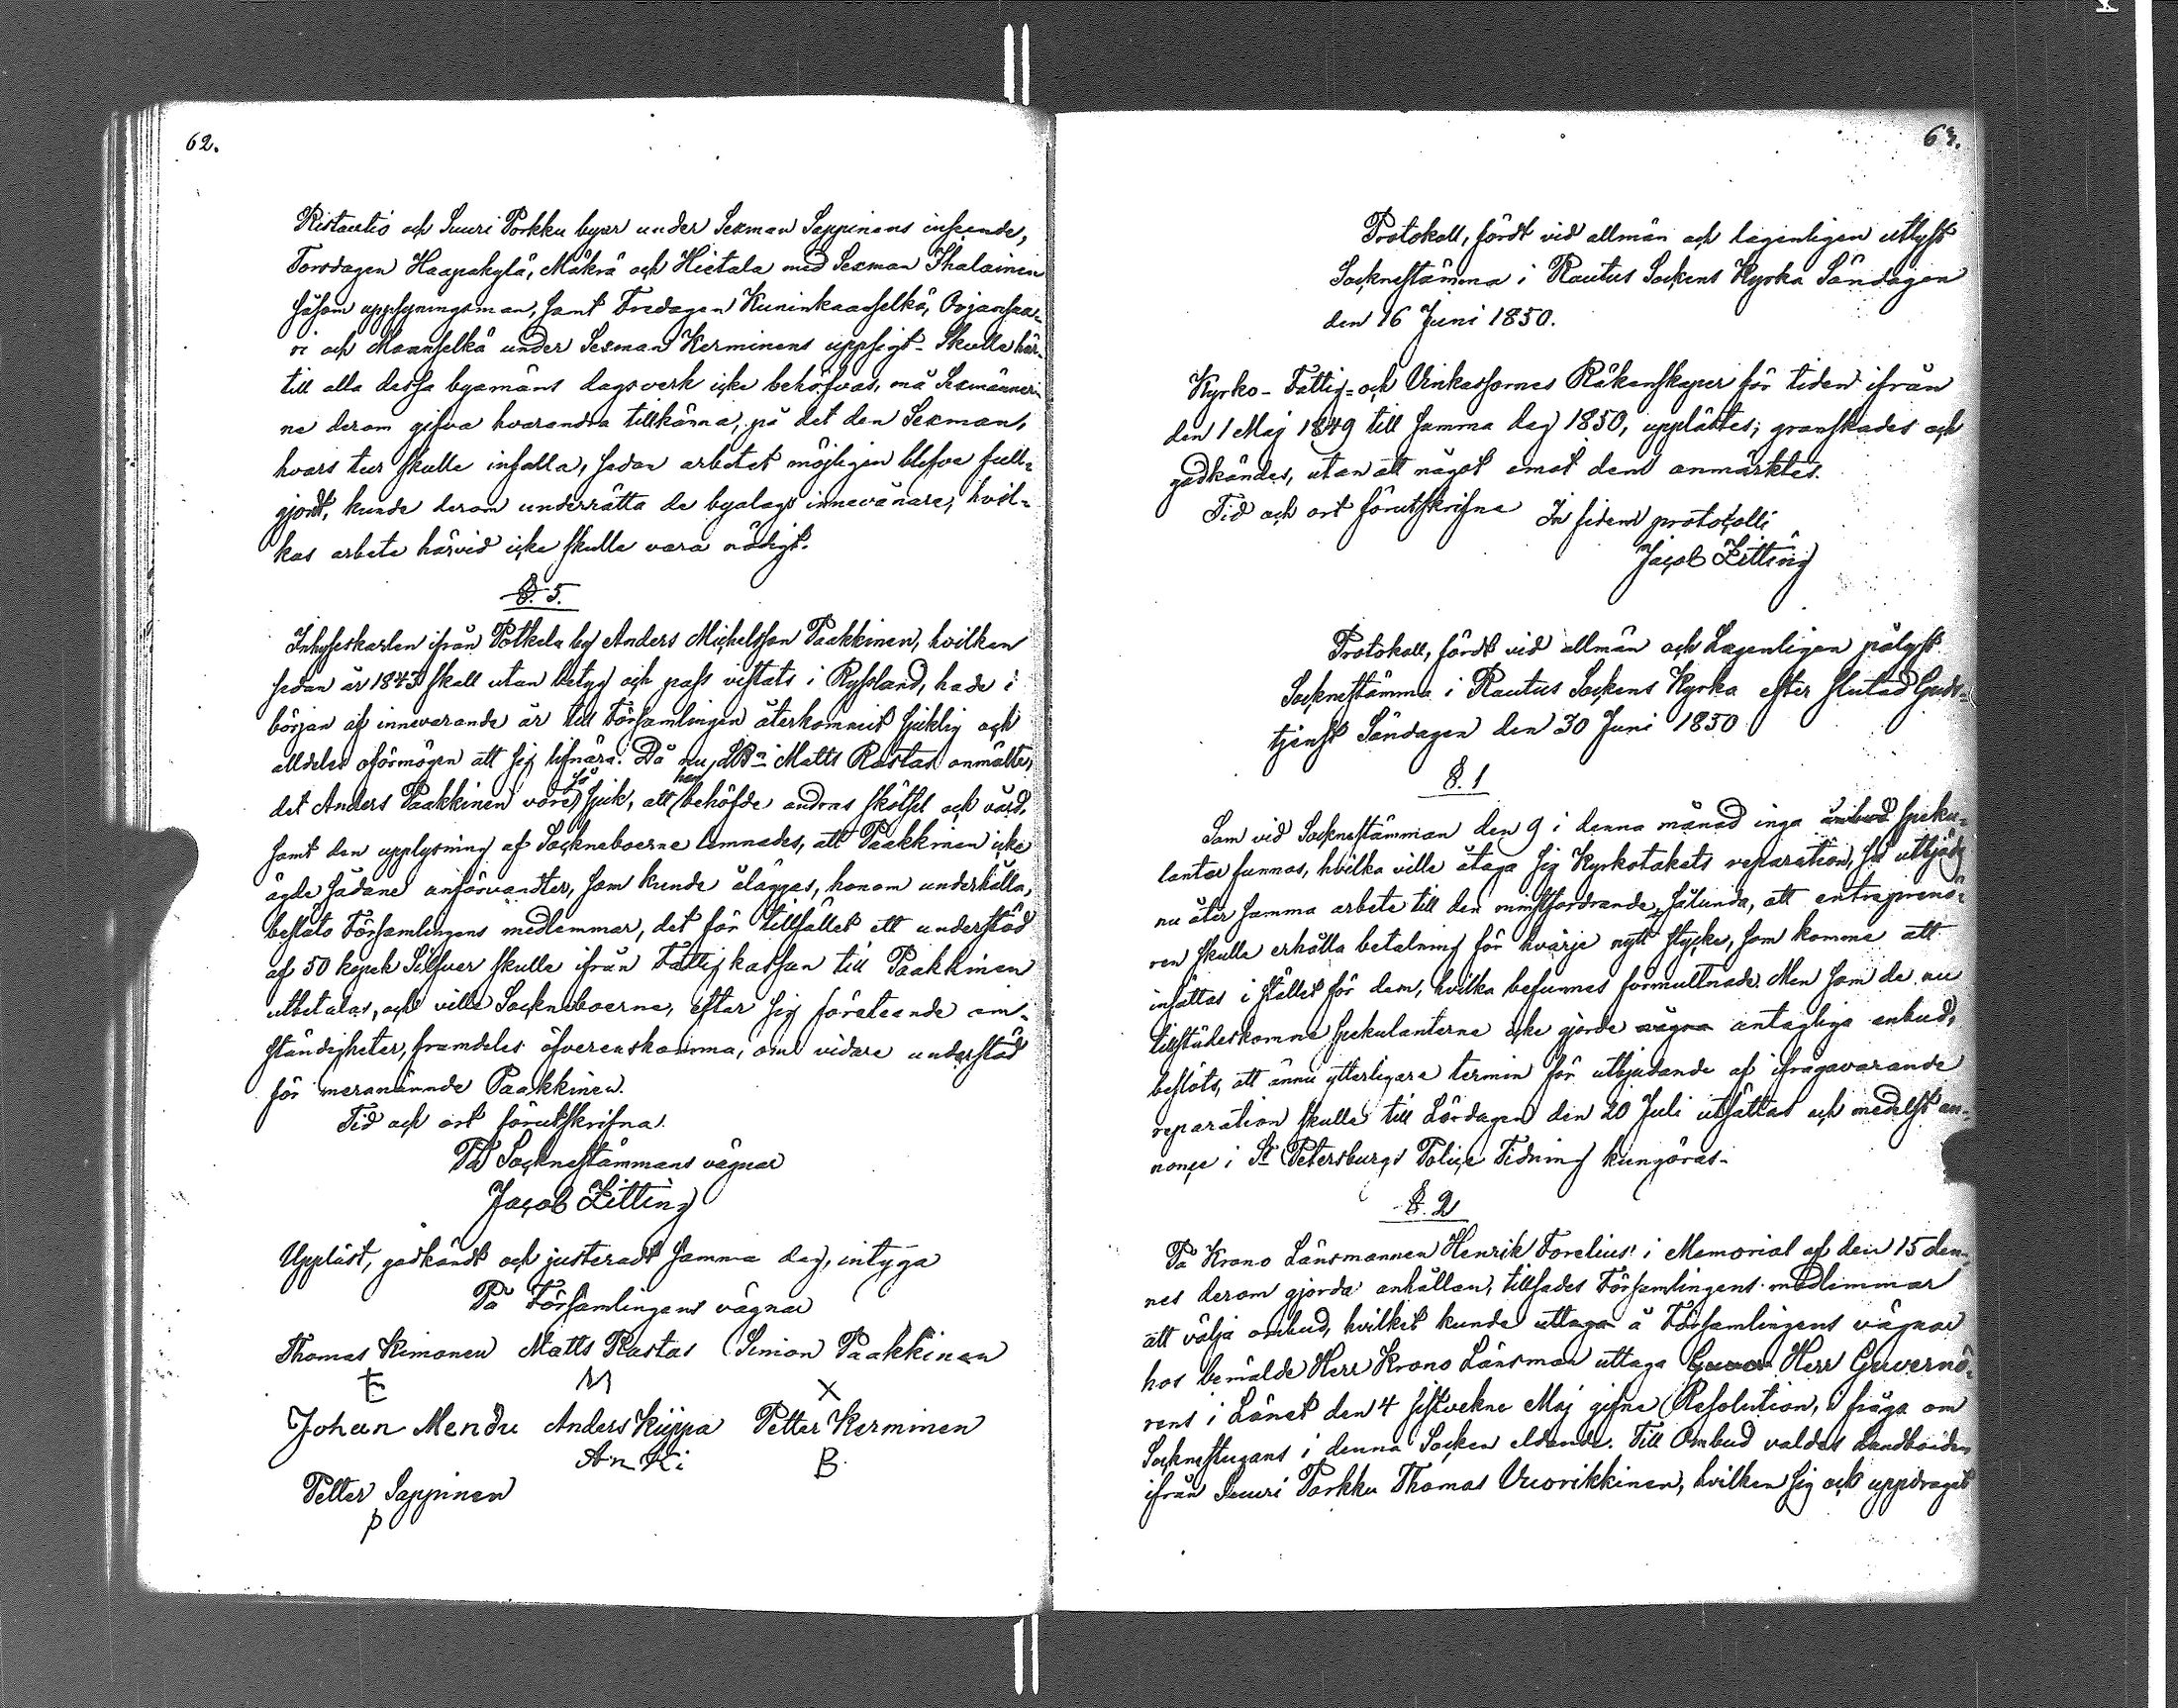 62.
Ristautio och Suuri Porkku byar under Sexman Sappinens inseende,
Torsdagen Haapakylä, Mäkrä och Hietala med Sexman Ihalainen
såsom upplysningsman, samt Fredagen Kuninkaanselkä, Orjansaa-
ri och Maanselkä under Sexman Kerminens uppsigt. Skulle här-
till alla dessa byamäns dagsverk icke behöfvas, må Sexmänner-
ne derom gifva hvarandra tillkänna, på det den Sexman,
hvars tur skulle infalla, sedan arbetet möjligen blefve full-
gjordt, kunde derom underrätta de byalags innevånare, hvil-
kas arbete härvid icke skulle vara nödigt.
§. 5.
Inhyseskarlen ifrån Potkela by Anders Michelsson Paakkinen, hvilken
sedan år 1843 skall utan betyg och pass vistats i Ryssland, hade i
början af innevarande år till Församlingen återkommit sjuklig och
alldeles oförmögen att sig lifnära. Då nu Matts Rastas anmälte,
det Anders Paakkinen vore så sjuk, att han behöfde andras skötsel och vård,
samt den upplysning af Sockneboerne lemnades, att Paakkinen icke
ägde sådane anförvandter, som kunde åläggas, honom underhålla,
besläto Församlingens medlemmar, det för tillfället ett understöd
af 50 kopek Silfver skulle ifrån Fattigkassan till Paakkinen
utbetalas, och ville Sockneboerne, efter sig företeende om-
ständigheter, framdeles öfverenskomma, om vidare understöd
för meranämnde Paakkinen.
Tid och ort förutskrifna.
På Sockneståmmans vägnar
Jacob Zitting
Uppläst, godkändt och justeradt samma dag, intyga
På Församlingens vägnar
Thomas Kimonen Matts Rastas Simon Paakkinen
E M X
Johan Mendu Anders Kiippa Petter Kerminen
An Ki B
Petter Sappinen
p
63.
Protokoll, fördt vid allmän och lagenligen utlyst
Socknestämma i Rautus Sockens Kyrka Söndagen
den 16 Juni 1850.
Kyrko- Fattig- och Vinkassornes Räkenskaper för tiden ifrån
den 1 Maj 1849 till samma dag 1850, upplästes; granskades och
godkändes, utan att något emot dem anmärktes.
Tid och ort förutskrifne In fidem protocolli
Jacob Zitting
Protokoll, fördt vid allmän och Lagenligen pålyst
Socknestämma i Rautus Sockens Kyrka efter slutad Guds-
tjenst Söndagen den 30 Juni 1850
§. 1
Som vid Sockneståmman den 9 i denna månad inga anbud speku-
lanter funnos, hvilka ville åtaga sig Kyrkotakets reparation, så utbjöds
nu åter samma arbete till den minstfordrande, sålunda, att entreprenö-
ren skulle erhålla betalning för hvarje nytt stycke, som komme att
insättas i stället för dem, hvilka befunnes förmultnade. Men som de nu
tillstädeskomne spekulanterne icke gjorde några antagliga anbud,
beslöts, att ännu ytterligare termin för utbjudande af ifrågavarande
reparation skulle till Lördagen den 20 Juli utsättas och medelst an-
nonçe i St Petersburgs Police Tidning kungöras.
§. 2
På Krono Länsmannen Henrik Forelius' i Memorial af den 15 den-
nes derom gjorda anhållan, tillsades Församlingens medlemmar
att välja ombud, hvilket kunde uttaga å Församlingens vägnar
hos bemälde Herr Krono Länsman uttaga Herr Guvernö-
rens i Länet den 4 sistvekne Maj gifne Resolution, i fråga om
Socknestugans i denna Socken eldande. Till Ombud valdes Landbonden
ifrån Suuri Porkku Thomas Vuorikkinen, hvilken sig och uppdraget